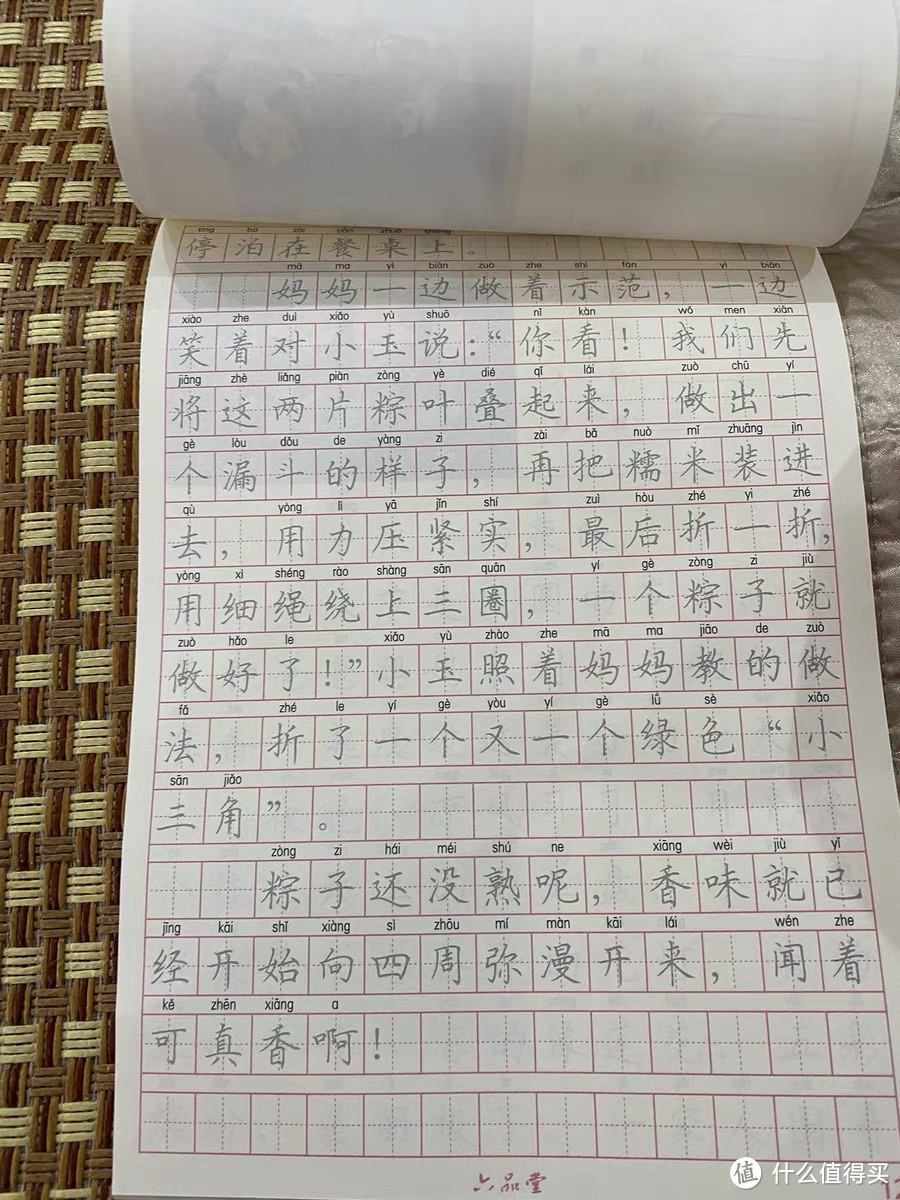 tíng bó zài cān zhuō shàng
停泊在餐桌上。
mā ma yì biān zuò zhe shì fàn yì biān
妈妈一边做着示范，一边
xiào zhe duì xiǎo yù shuō nǐ kàn wǒ men xiān
笑着对小玉说：“你看！我们先
jiāng zhè liǎng piàn zòng yè dié qǐ lái zuò chū yí
将这两片粽叶叠起来，做出一
gè lòu dǒu de yàng zi zài bǎ nuò mǐ zhuāng jìn
个漏斗的样子，再把糯米装进
qù yòng lì yā jǐn shí zuì hòu zhé yi zhé
去，用力压紧实，最后折一折，
yòng xì shéng rào shàng sān quān yí gè zòng zi jiù
用细绳绕上三圈，一个粽子就
zuò hǎo le xiǎo yù zhào zhe mā ma jiāo de zuò
做好了！”小玉照着妈妈教的做
fǎ zhé le yí gè yòu yí gè lǜ sè xiǎo
法，折了一个又一个绿色“小
sān jiǎo
三角”。
zòng zi hái méi shú ne xiāng wèi jiù yǐ
粽子还没熟呢，香味就已
jīng kāi shǐ xiàng sì zhōu mí màn kāi lái wén zhe
经开始向四周弥漫开来，闻着
kě zhēn xiāng a
可真香啊！
六品堂
值 什么值得买